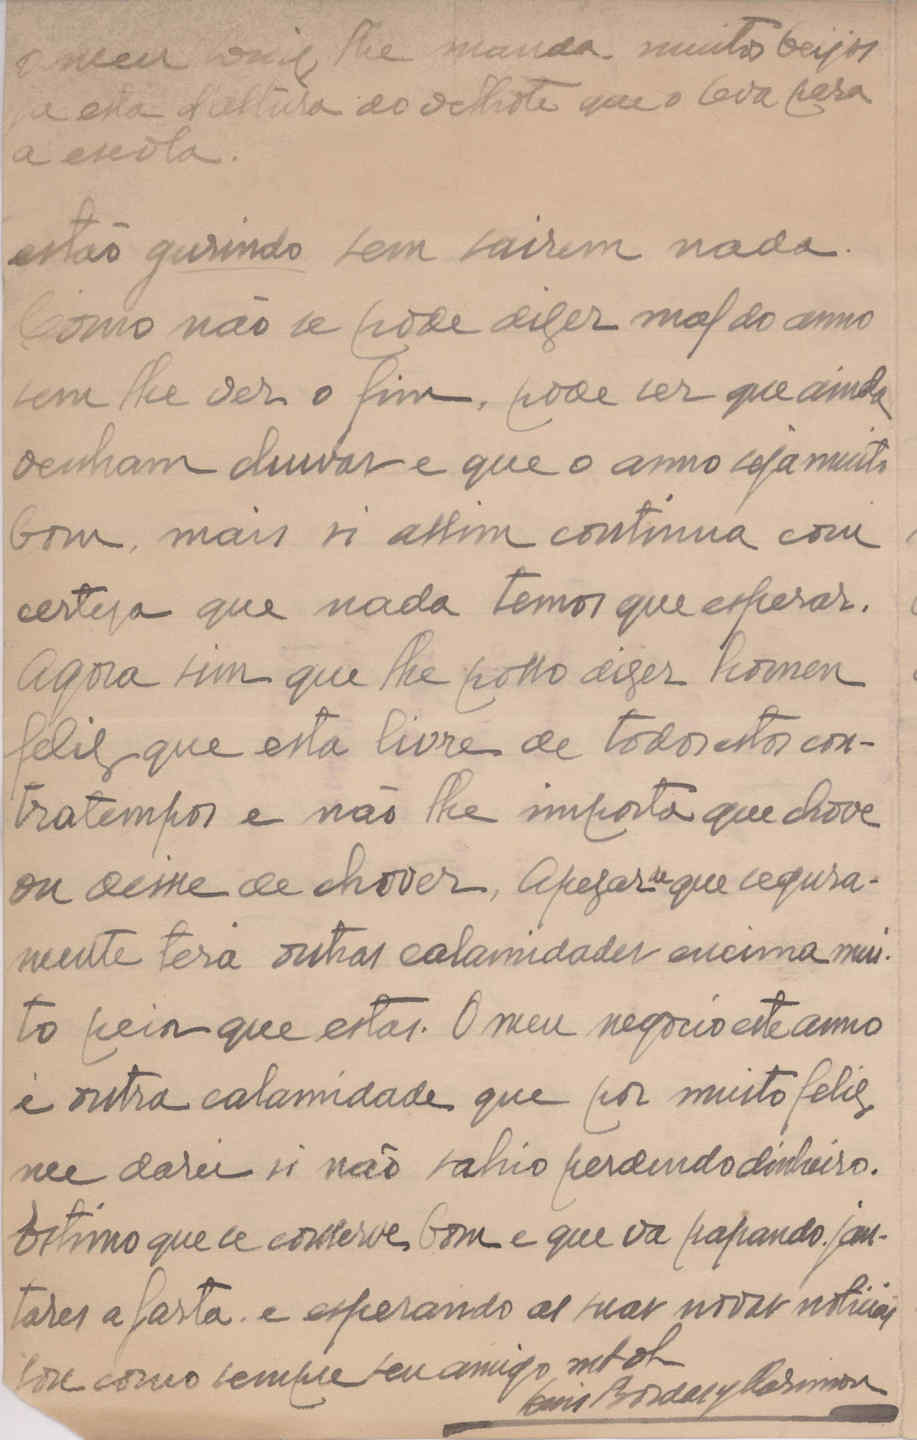 o meu Luiz lhe manda muitos beijos
ja esta d'altura do velhote que o leva pera
a escola.
estão gurindo sem sairem nada.
Como não se pode dizer mal do anno
sem lhe ver o fim, pode ser que ainda
venham chuvas e que o anno seja muito
bom, mais si assim continua com
certeza que nada temos que esperar.
Agora sim que lhe posso dizer homen
feliz que esta livre de todos estos con-
tratempos e não lhe importa que chove
ou deixe de chover, Apezar de que segura-
mente terá outras calamidades encima mui-
to peior que estas. O meu negocio este anno
é outra calamidade que por muito feliz
me darei si não sahio perdendo dinheiro.
Estimo que se conserve bom e que va papando jan-
tares a farta e esperando as suas novas noticias
sou como sempre seu amigo
Luis Bordas y